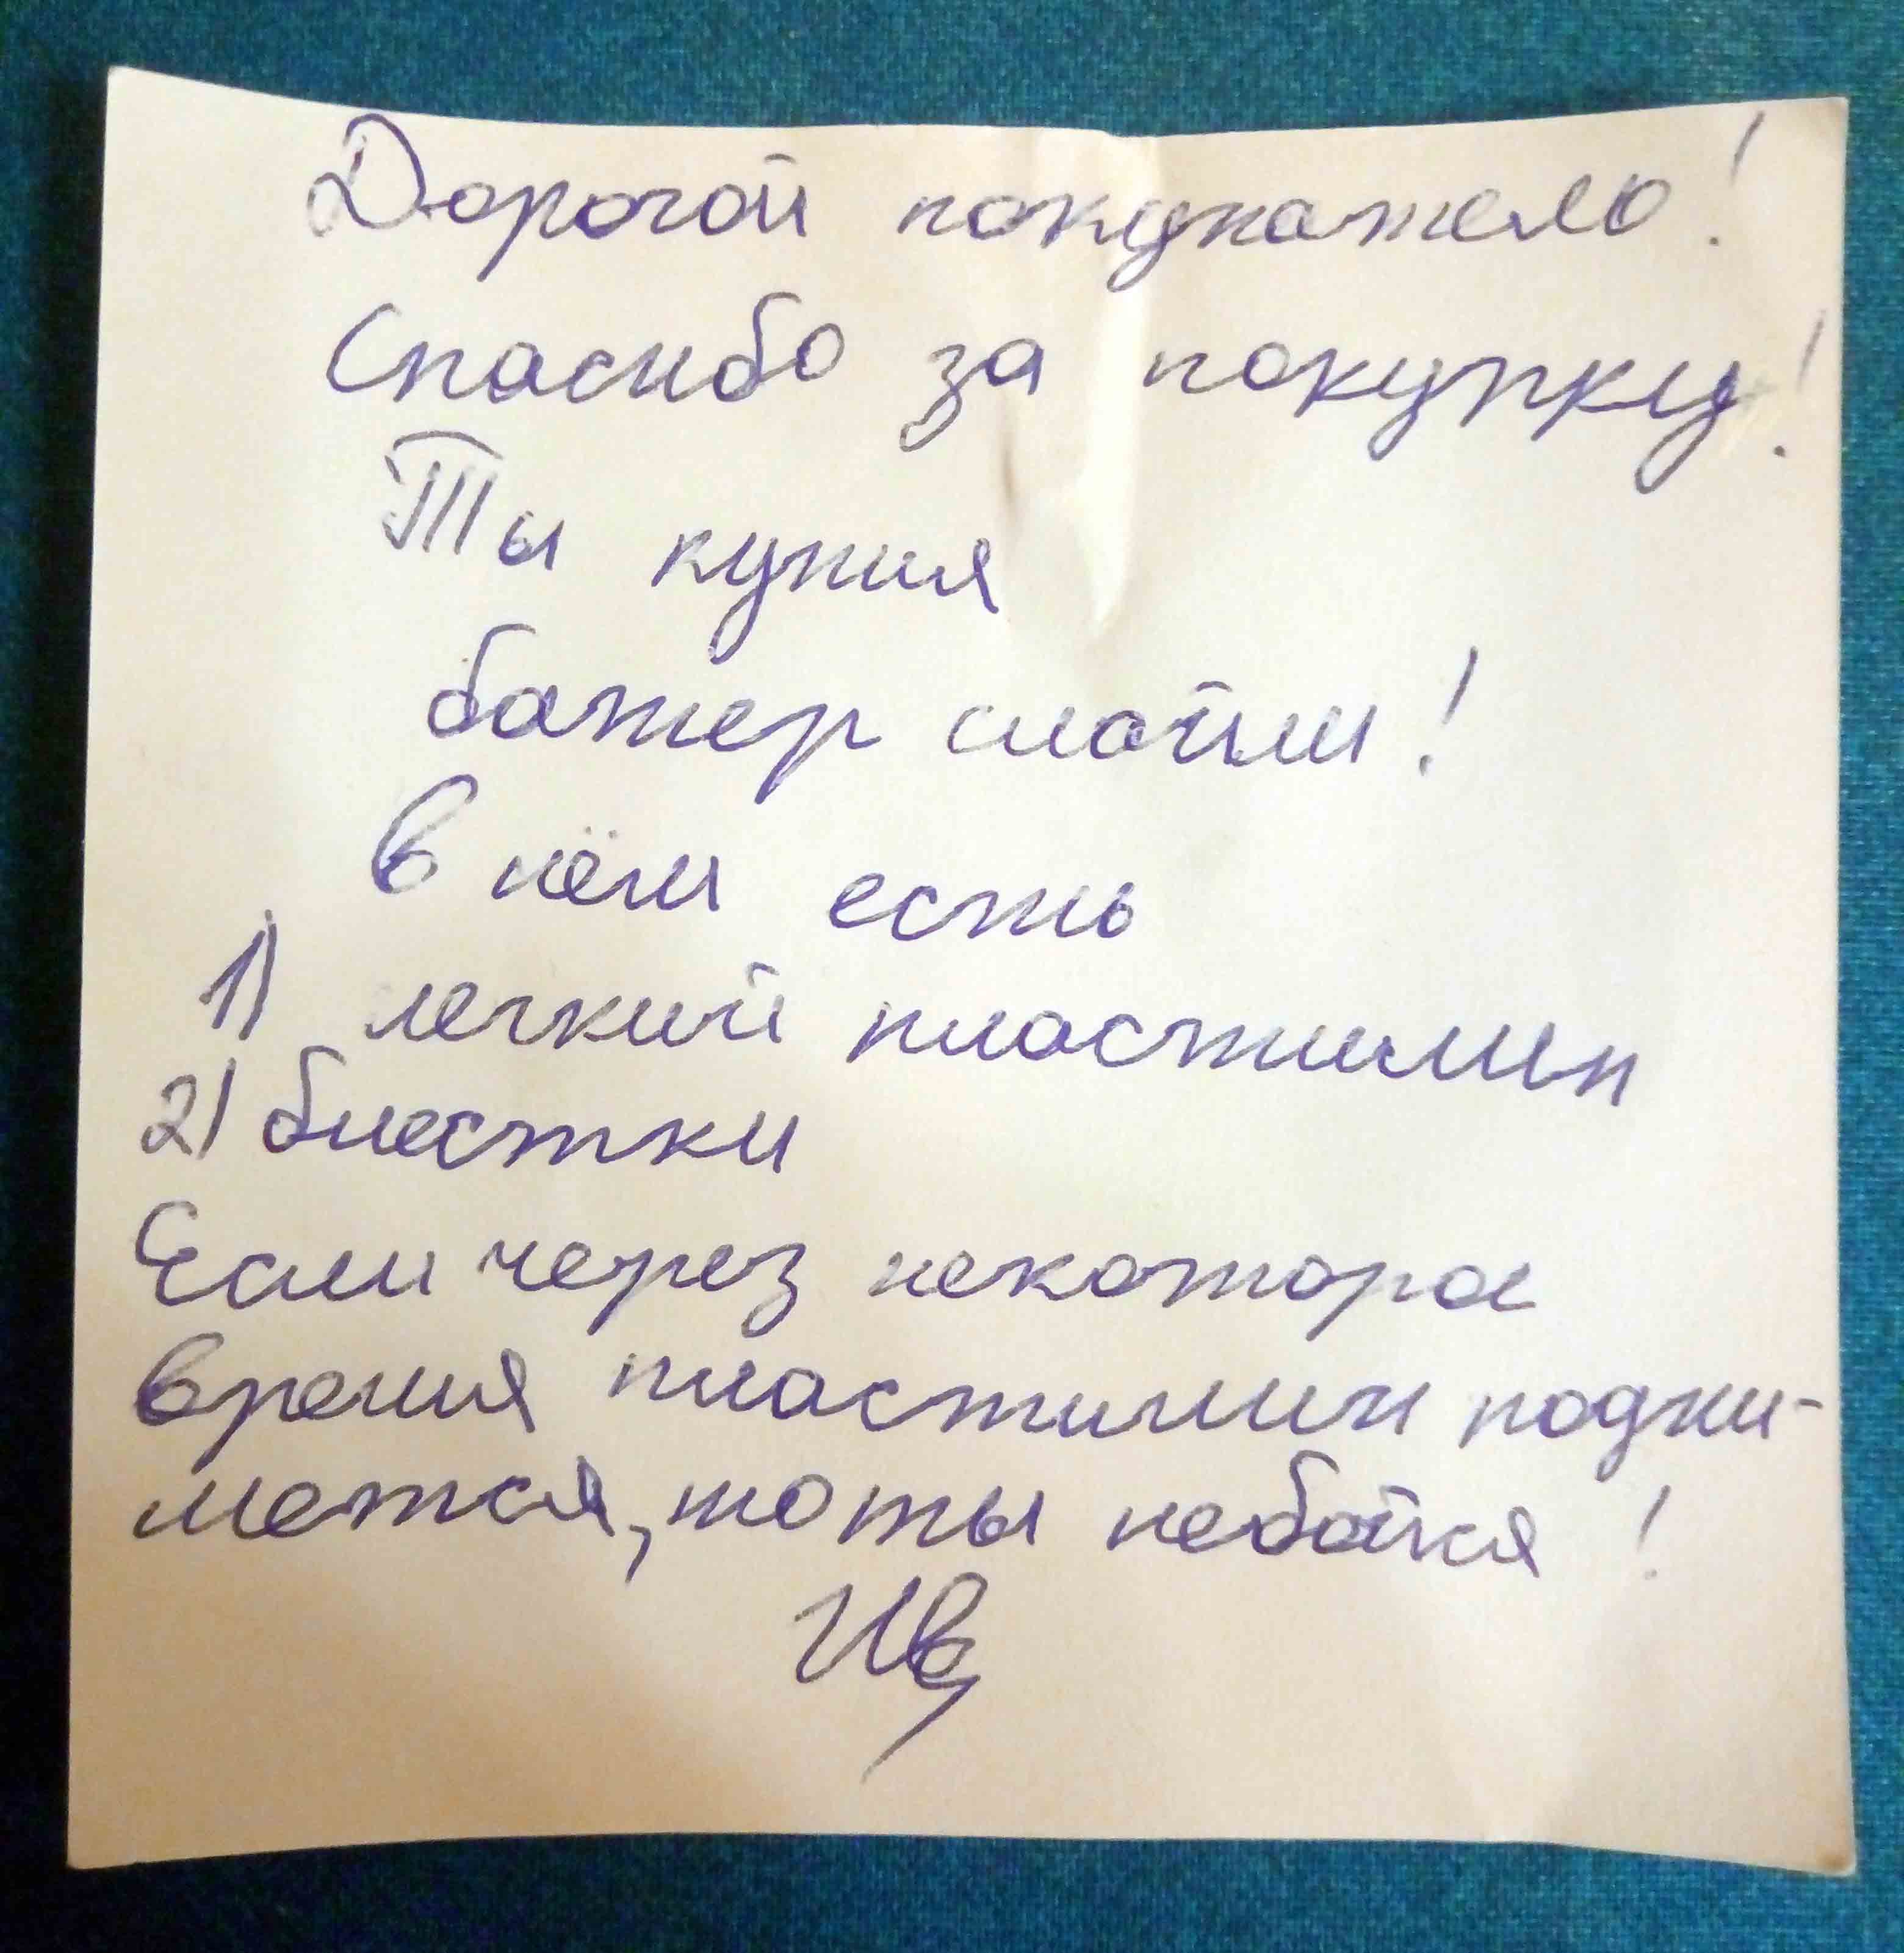 Дорогой покупатель!
Спасибо за покупку!
Ты купил
батер слайм!
В нём есть
1) легкий пластилин
2) блестки
Если через некоторое
время пластилин подни-
мется, то ты небойся!